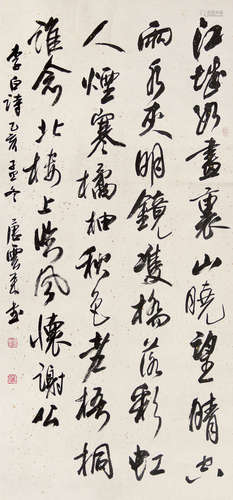 江城如畫裏山曉望晴空
兩水夾明鏡雙橋落彩虹
人煙寒橘柚秋色老梧桐
誰念北樓上臨風懷謝公
李白詩乙亥孟冬唐雲來書